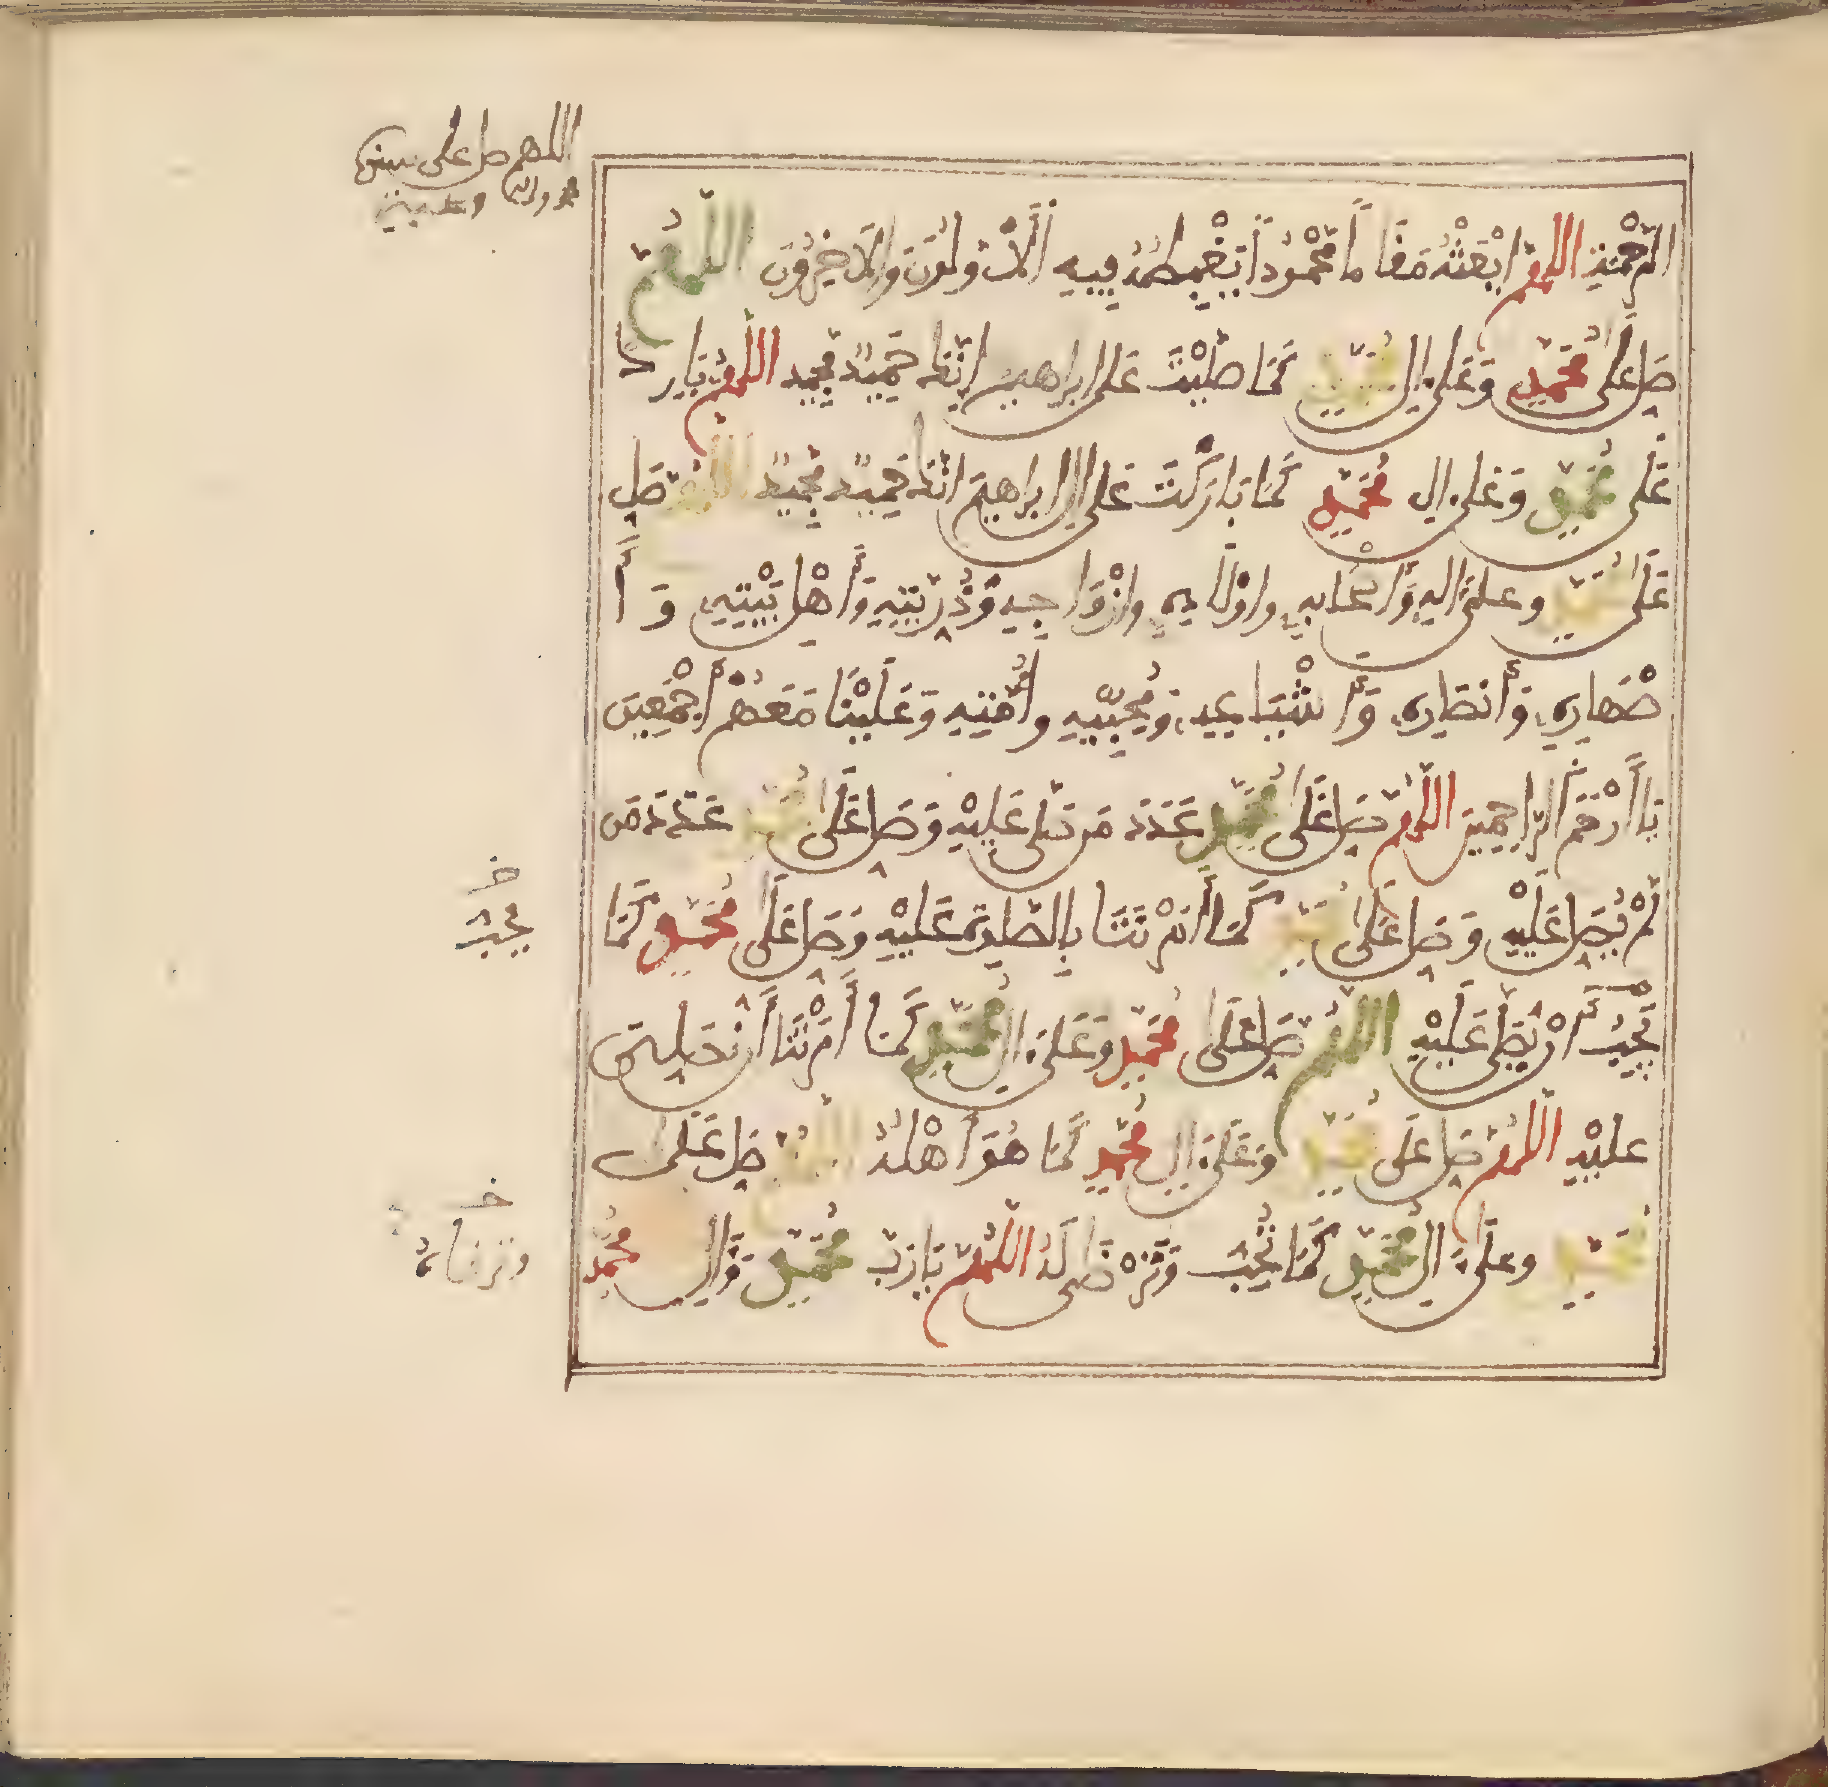 اللهم صل على سيدنا
محمد واله وصحبه
الرَّحْمَةِ اللهم ابْعَثْهُ مَقَامًا مَحْمُودًا يَغْبِطُهُ فِيهِ الَاوَّلُونَ وَالَاخِرُونَ اللَّهُمَّ
صَلِّ عَلَى مُحَمَّدٍ وَعَلَى ءالِ مُحَمَّدٍ كَمَا صَلَّيْتَ عَلَى إبراهيم إنَّكَ حَمِيدٌ مَّجِيد اللهم بَارك
عَلَى مُحَمَّدٍ وَعَلَى ءال مُحَمَّدٍ كَمَا بَارَكْتَ عَلَى ءال ابراهِيمَ انَّكَ حَمِيدٌ مَّجِيدٌ اللهم صَلِّ
عَلَى مُحَمَّدٍ وعلى ءاله وَأَصْحَابِهِ وَاوْلَادِهِ وَازْوَاجِهِ وَذُرِّيَّتِهِ وَأَهْلِ بَيْتِهِ وَأَ
صْهَارِهِ وَأَنصَارِهِ وَأَشْيَاعِهِ وَمُحِبِّيهِ وَأُمَّتِهِ وَعَلَيْنَا مَعَهُمْ أَجْمَعِينَ
يَا أَرْحَمَ الرَّاحِمِينَ اللَّهُمَّ صَلِّ عَلَى مُحَمَّدٍ عَدَدَ مَن صَلَّى عَلَيْهِ وَصَلِّ عَلَى مُحَمَّدٍ عَدَدَ مَن
لَّمْ يُصَلِّ عَلَيْهِ وَصَلِّ عَلَى مُحَمَّدٍ كَمَا أَمَرْتَنَا بِالصَّلوةِ عَلَيْهِ وَصَلِّ عَلَى مُحَمَّدٍ كَمَا
تُحِبُّ أَنْ يُّصَلَّى عَلَيْهِ اللَّهُمَّ صَلِّ عَلَى مُحَمَّدٍ وَعَلَى ءالِ مُحَمَّدٍ كَمَا أَمَرْتَنَا أَن نُصَلِّيَ
عليْهِ اللَّهُمَّ صَلِّ عَلَى مُحَمَّدٍ وَعَلَى ءالِ مُحَمَّدٍ كَمَا هُوَ أَهْلُهُ اللَّهُمَّ صَلِّ عَلَى
مُحَمَّدٍ وعَلَى ءالِ مُحَمَّدٍ كَمَا تُحِبُّ وَتَرْضَى لَهُ اللَّهُمَّ يَا رَبَّ مُحَمَّدٍ وَءَالِ مُحَمَّدٍ
خ
يجب
خ
وترضاه